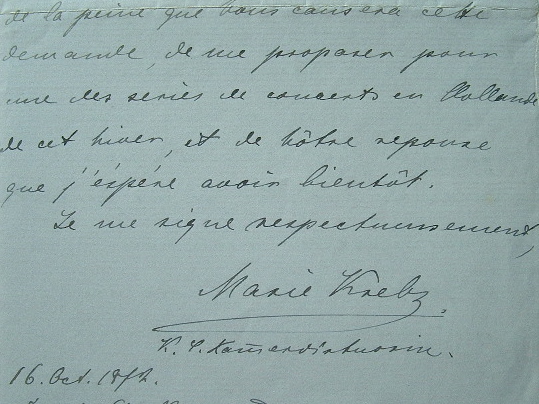 de la peine que vous causera cette
demande, de me proposer pour
une des séries de concerts en Hollande
de cet hiver, et de vôtre reponse
que j'éspére avoir bientôt.
Je me signe respectueusement,
Marie Krebs
K. S. Kam̄ervirtuosin.
16. Oct. 1872.